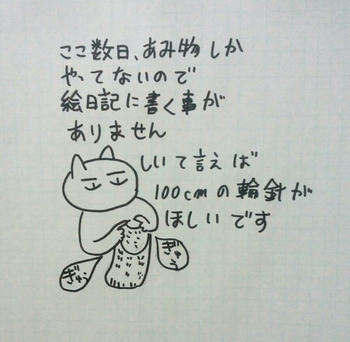 ここ数日、あみ物しか
やってないので
絵日記に書く事が
ありません
しいて言えば
100cmの輪針が
ほしいです
ぎゅう
ぎゅう